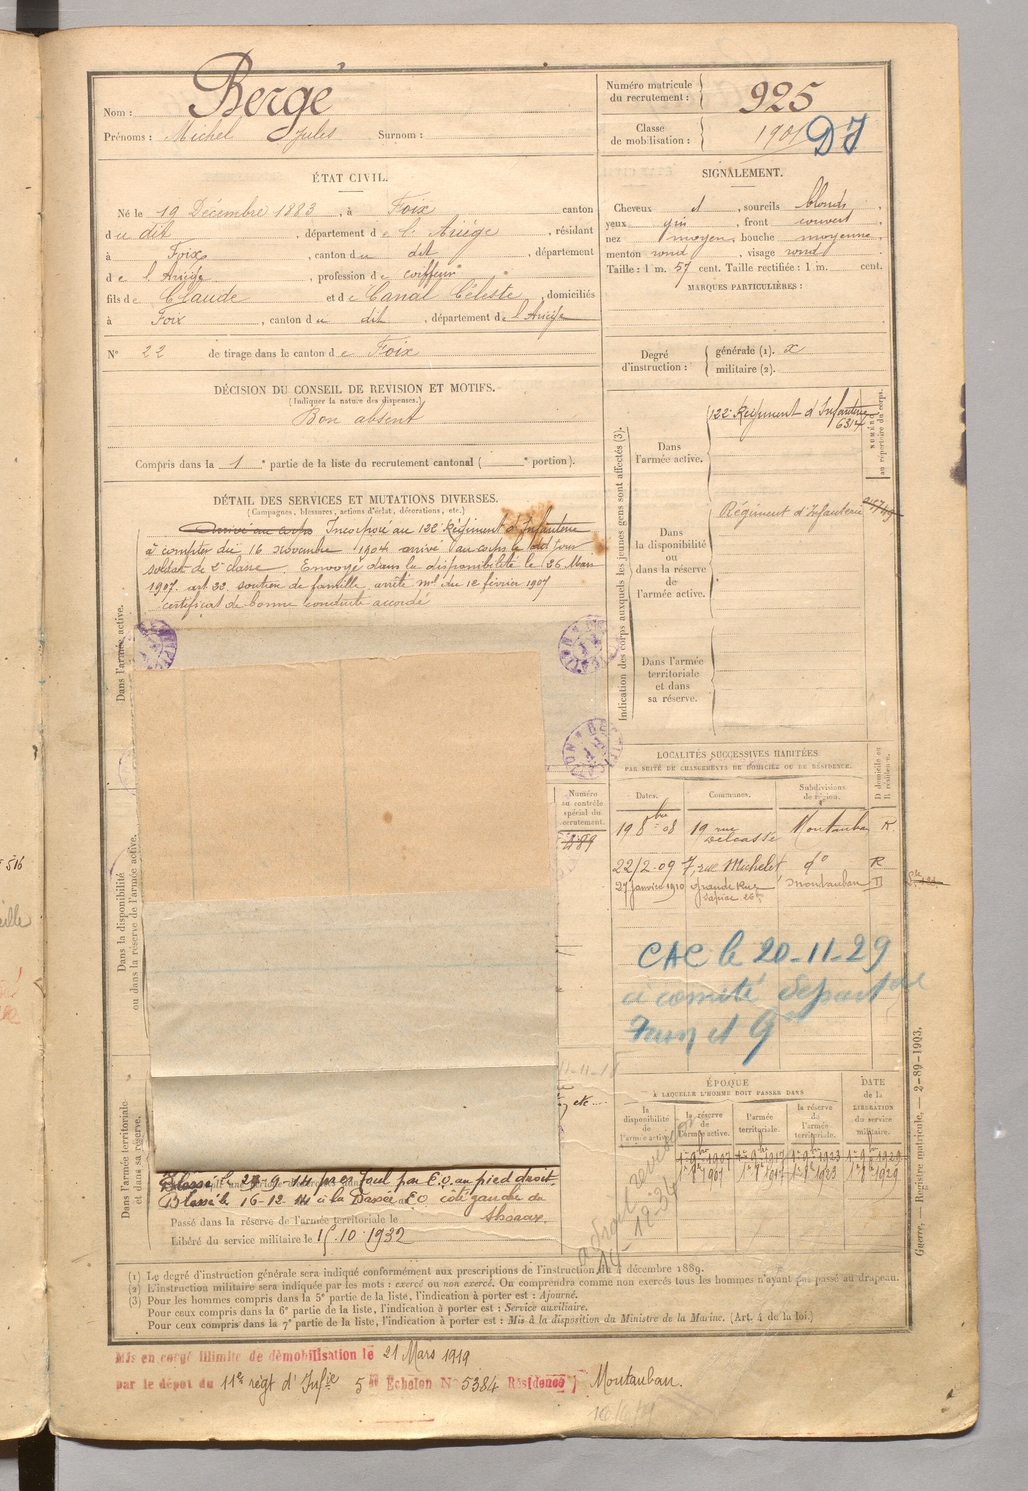 Nom : Bergé
Prénoms : Michel Jules Surnom :
Numéro matricule du recrutement : 925
Classe de mobilisation : 1901 DJ
ÉTAT CIVIL.
Né le 19 Décembre 1883, à Foix canton
du dit, département de l'Ariège, résidant
à Foix, canton du dit, département
de l'Ariège, profession de coiffeur
fils de Claude et de Canal Céleste, domiciliés
à Foix, canton du dit, département de l'Ariège
N° 22 de tirage dans le canton de Foix
SIGNALEMENT.
Cheveux et, sourcils blonds,
yeux gris, front couvert,
nez moyen, bouche moyenne,
menton rond, visage rond
Taille : 1 m. 57 cent. Taille rectifiée : 1 m. cent.
MARQUES PARTICULIÈRES :
Degré d'instruction : générale (1). x
militaire (2).
DÉCISION DU CONSEIL DE REVISION ET MOTIFS.
(Indiquer la nature des dispenses.)
Bon absent
Compris dans la 1e partie de la liste du recrutement cantonal ( e portion).
DÉTAIL DES SERVICES ET MUTATIONS DIVERSES.
(Campagnes, blessures, actions d'éclat, décorations, etc.)
Arrivé au corps Incorporé au 122e Régiment d'Infanterie
à compter du 16 novembre 1904 arrivé au corps le dit jour
soldat de 2e classe. Envoyé dans la disponibilité le 26 Mars
1907. art 22. soutien de famille, arrêté ml du 12 février 1907
certificat de bonne conduite accordé
Dans l'armée active.
Dans la disponibilité
ou dans la réserve de l'armée active.
Dans l'armée territoriale
et dans sa réserve.
Indication des corps auxquels les jeunes gens sont affectés (3).
Dans l'armée active.
122e Régiment d'Infanterie
6314
NUMÉRO
au répertoire du corps.
Dans la disponibilité ou dans la réserve de l'armée active.
Régiment d'Infanterie
Dans l'armée territoriale et dans sa réserve.
Numéro au contrôle spécial du recrutement.
489
LOCALITÉS SUCCESSIVES HABITÉES
PAR SUITE DE CHANGEMENTS DE DOMICILE OU DE RÉSIDENCE.
Dates. Communes. Subdivisions de région. D domicile ou R résidence.
19 8bre 08 19 rue Delcassé Montauban R
22/2-09 7, rue Michelet do R
27 janvier 1910 Grande Rue Sapiac 26 Montauban D
CAC le 20-11-29
à comité départal
ÉPOQUE
À LAQUELLE L'HOMME DOIT PASSER DANS
DATE de la LIBÉRATION du service militaire.
la disponibilité de l'armée active. la réserve de l'armée active. l'armée territoriale. la réserve de l'armée territoriale.
1er 9bre 1907 1er 9bre 1917 1er 9bre 1923 1er 9bre 1929
Blessé le 29-9-14 près Foul par E.O. au pied droit.
Blessé le 16-12-14 à la Bassée EO côté gauche du
thorax.
Passé dans la réserve de l'armée territoriale le
Libéré du service militaire le 15.10.1932
(1) Le degré d'instruction générale sera indiqué conformément aux prescriptions de l'instruction du 4 décembre 1889.
(2) L'instruction militaire sera indiquée par les mots : exercé ou non exercé. On comprendra comme non exercés tous les hommes n'ayant pas passé au drapeau.
(3) Pour les hommes compris dans la 5e partie de la liste, l'indication à porter est : Ajourné.
Pour ceux compris dans la 6e partie de la liste, l'indication à porter est : Service auxiliaire.
Pour ceux compris dans la 7e partie de la liste, l'indication à porter est : Mis à la disposition du Ministre de la Marine. (Art. 4 de la loi.)
Guerre. — Registre matricule. — 2-89-1903.
Mis en congé illimité de démobilisation le 21 Mars 1919
par le dépôt du 11e régt d'Infie 5e Echelon N° 5384 Résidence Montauban.